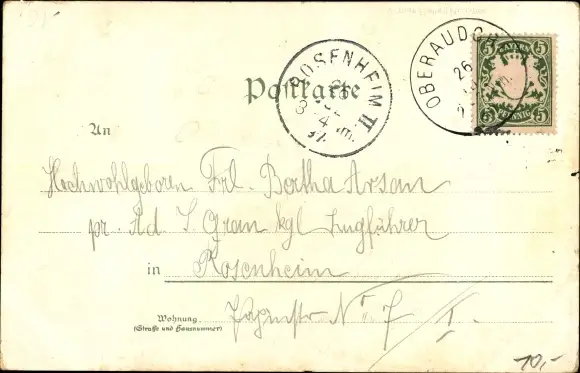 OBERAUDORF
26
5 BAYERN 5
5 PFENNIG 5
ROSENHEIM II
Postkarte
An
Hochwohlgeboren Frl. Bertha Arsan
pr. Ad. Gran kgl Zugführer
in Rosenheim
Wohnung
(Straße und Hausnummer)
No 7 / I.
10,-